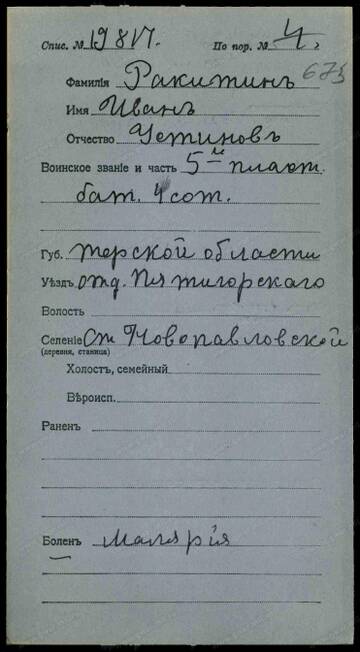 Спис. № 1981г. По пор. № 4,
673
Фамилія Ракитинъ
Имя Иванъ
Отчество Устиновъ
Воинское званіе и часть 5 пласт.
бат. 4 сот.
Губ. Терской области
Уѣздъ отд. Пятигорскаго
Волость
Селеніе Ст Новопавловской
(деревня, станица)
Холостъ, семейный
Вѣроисп.
Раненъ
Боленъ Малярія